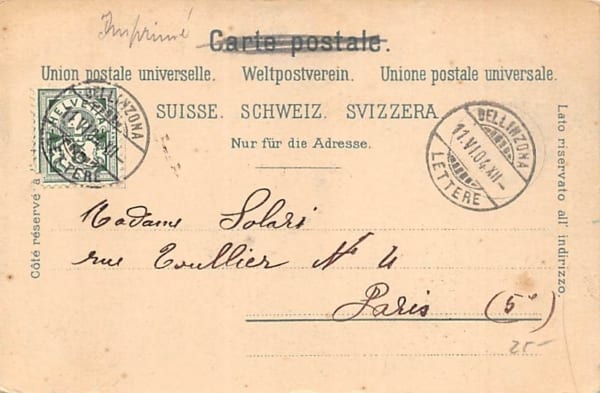 Imprimé
Carte postale.
Union postale universelle. Weltpostverein. Unione postale universale.
SUISSE. SCHWEIZ. SVIZZERA.
Nur für die Adresse.
Côté réservé à
Lato riservato all' indirizzo.
HELVETIA
BELLINZONA
LETTERE
BELLINZONA
11.VI.04.XII-
LETTERE
Madame Solari
rue Toullier No 4
Paris (5e)
25-